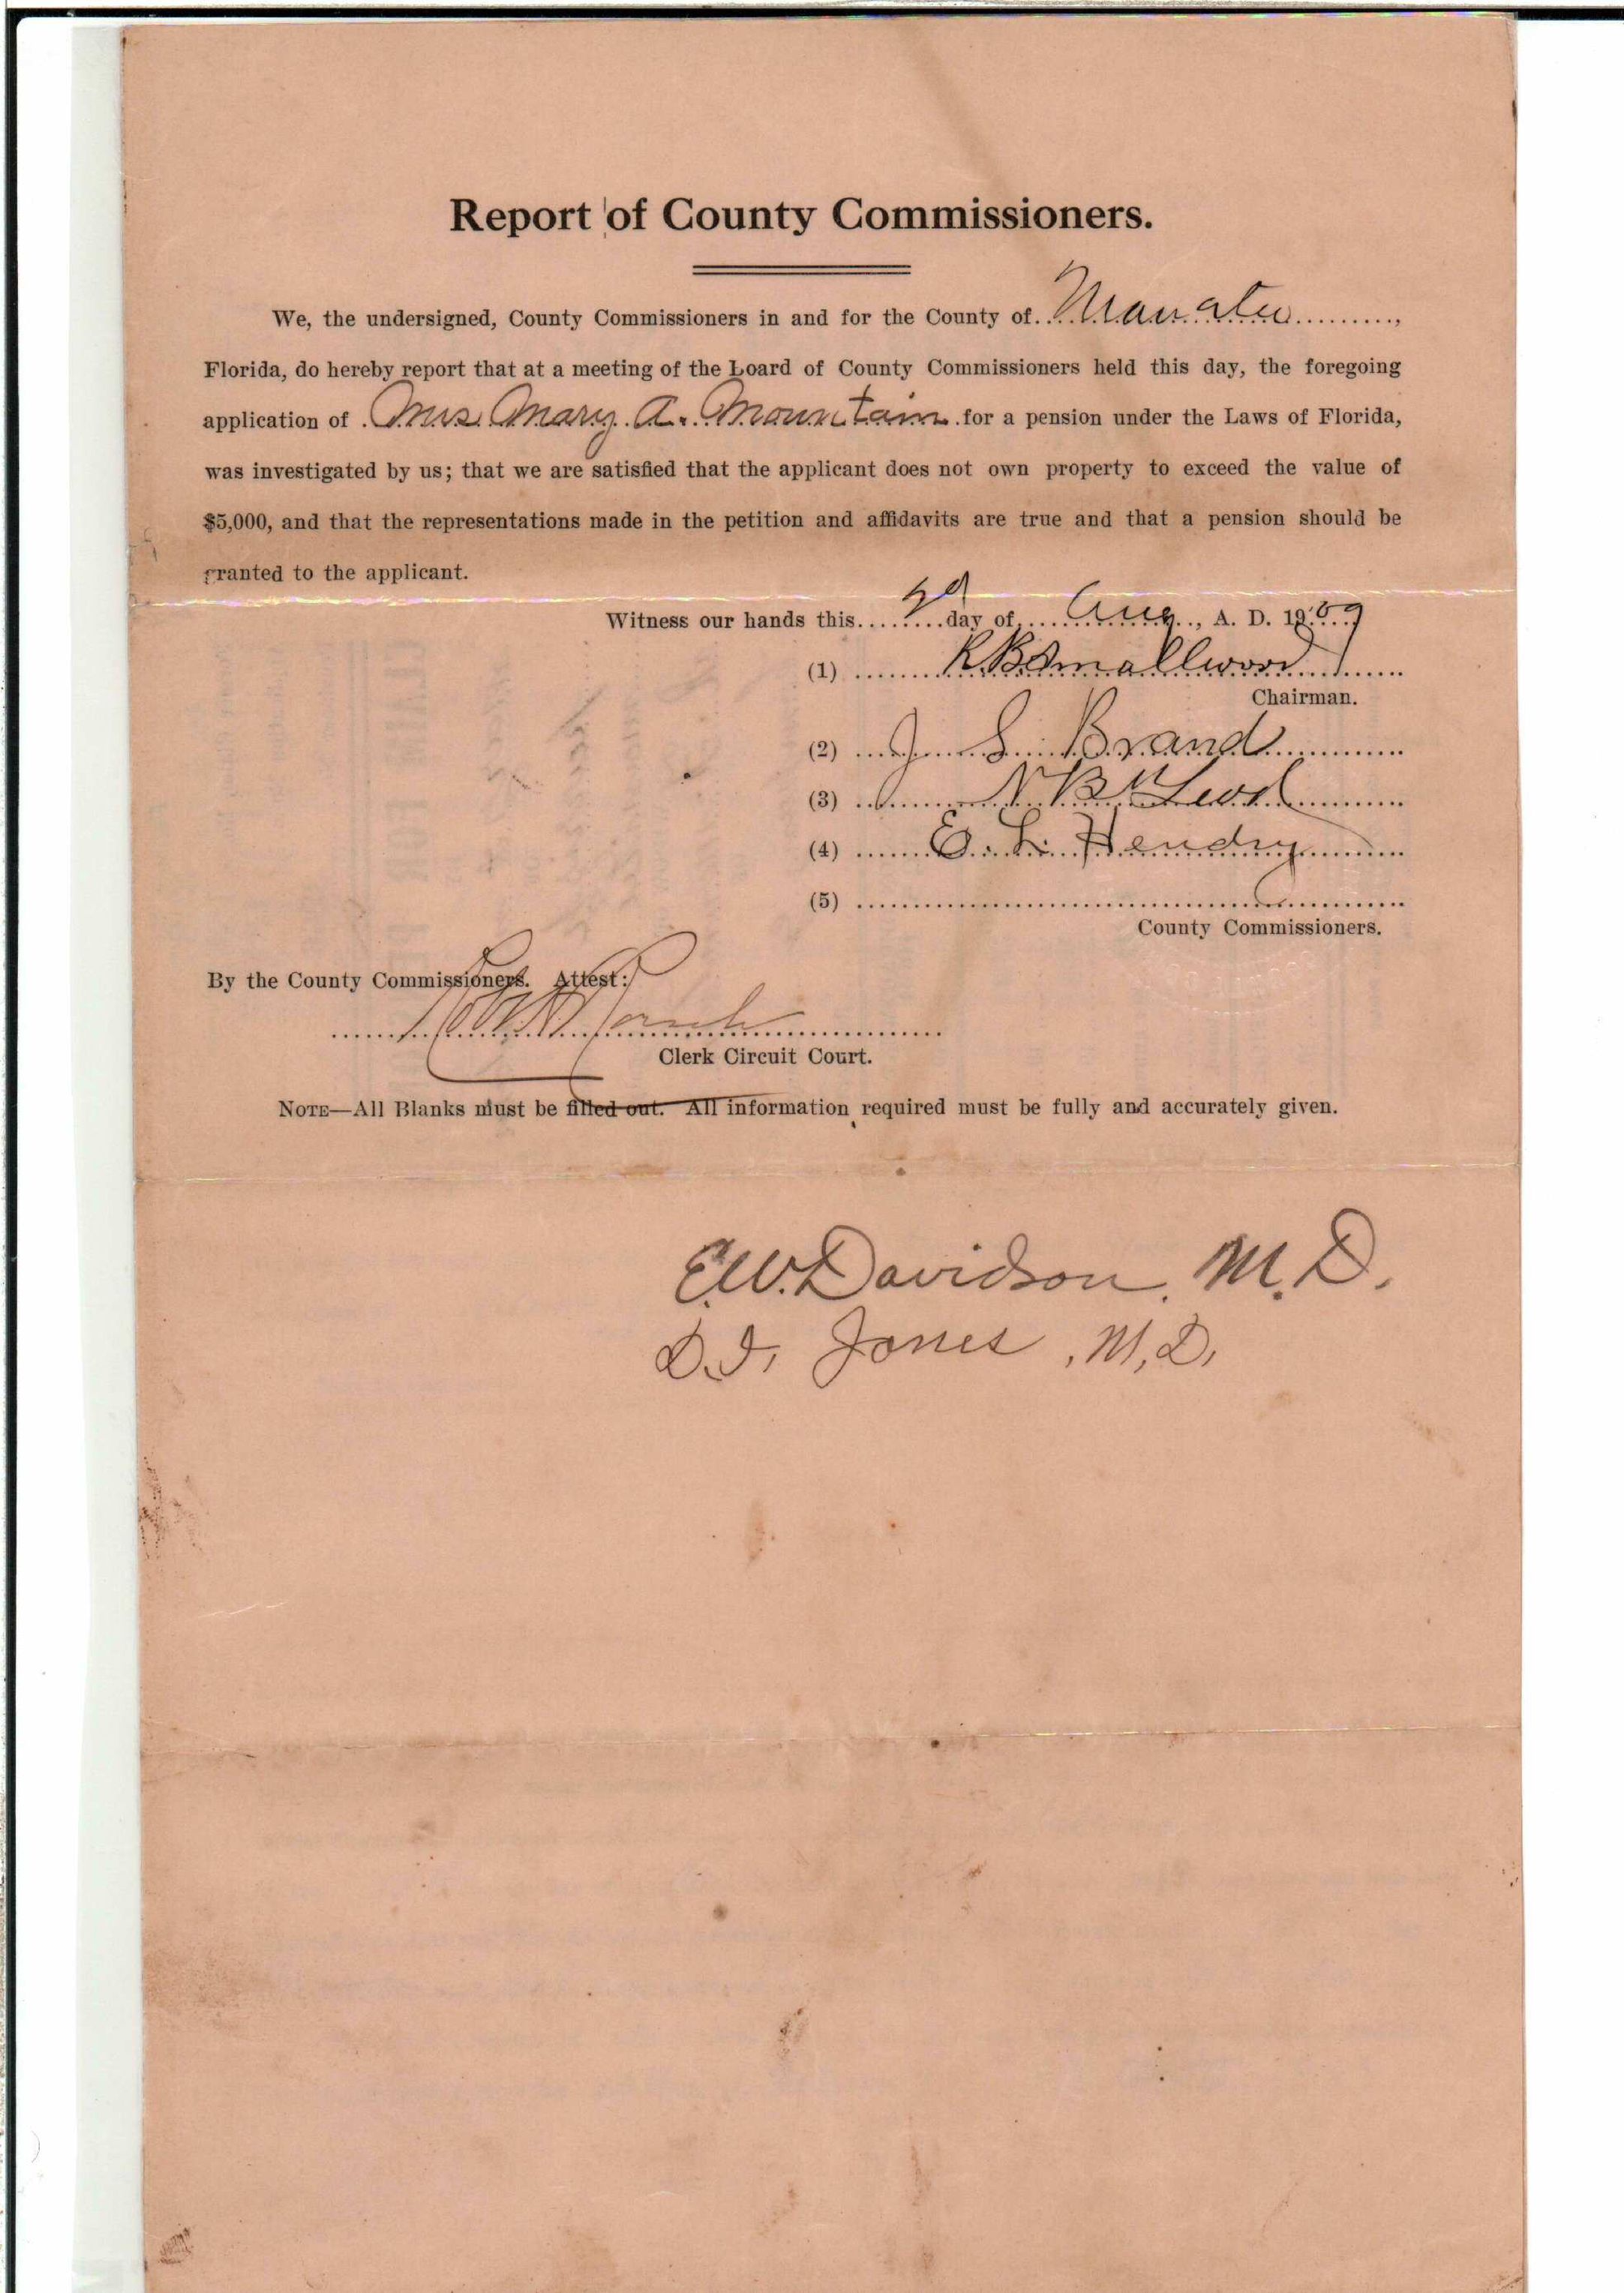 Report of County Commissioners.
We, the undersigned, County Commissioners in and for the County of Manatee,
Florida, do hereby report that at a meeting of the Board of County Commissioners held this day, the foregoing
application of Mrs. Mary A. Mountain for a pension under the Laws of Florida,
was investigated by us; that we are satisfied that the applicant does not own property to exceed the value of
$5,000, and that the representations made in the petition and affidavits are true and that a pension should be
granted to the applicant.
Witness our hands this day of Aug, A. D. 1909
(1) R B Smallwood
Chairman.
(2) J S Brand
(3) N B McLeod
(4) E. L. Hendry
(5)
County Commissioners.
By the County Commissioners. Attest:
Clerk Circuit Court.
NOTE—All Blanks must be filled out. All information required must be fully and accurately given.
E.W. Davidson. M.D.
D.I. Jones, M.D.